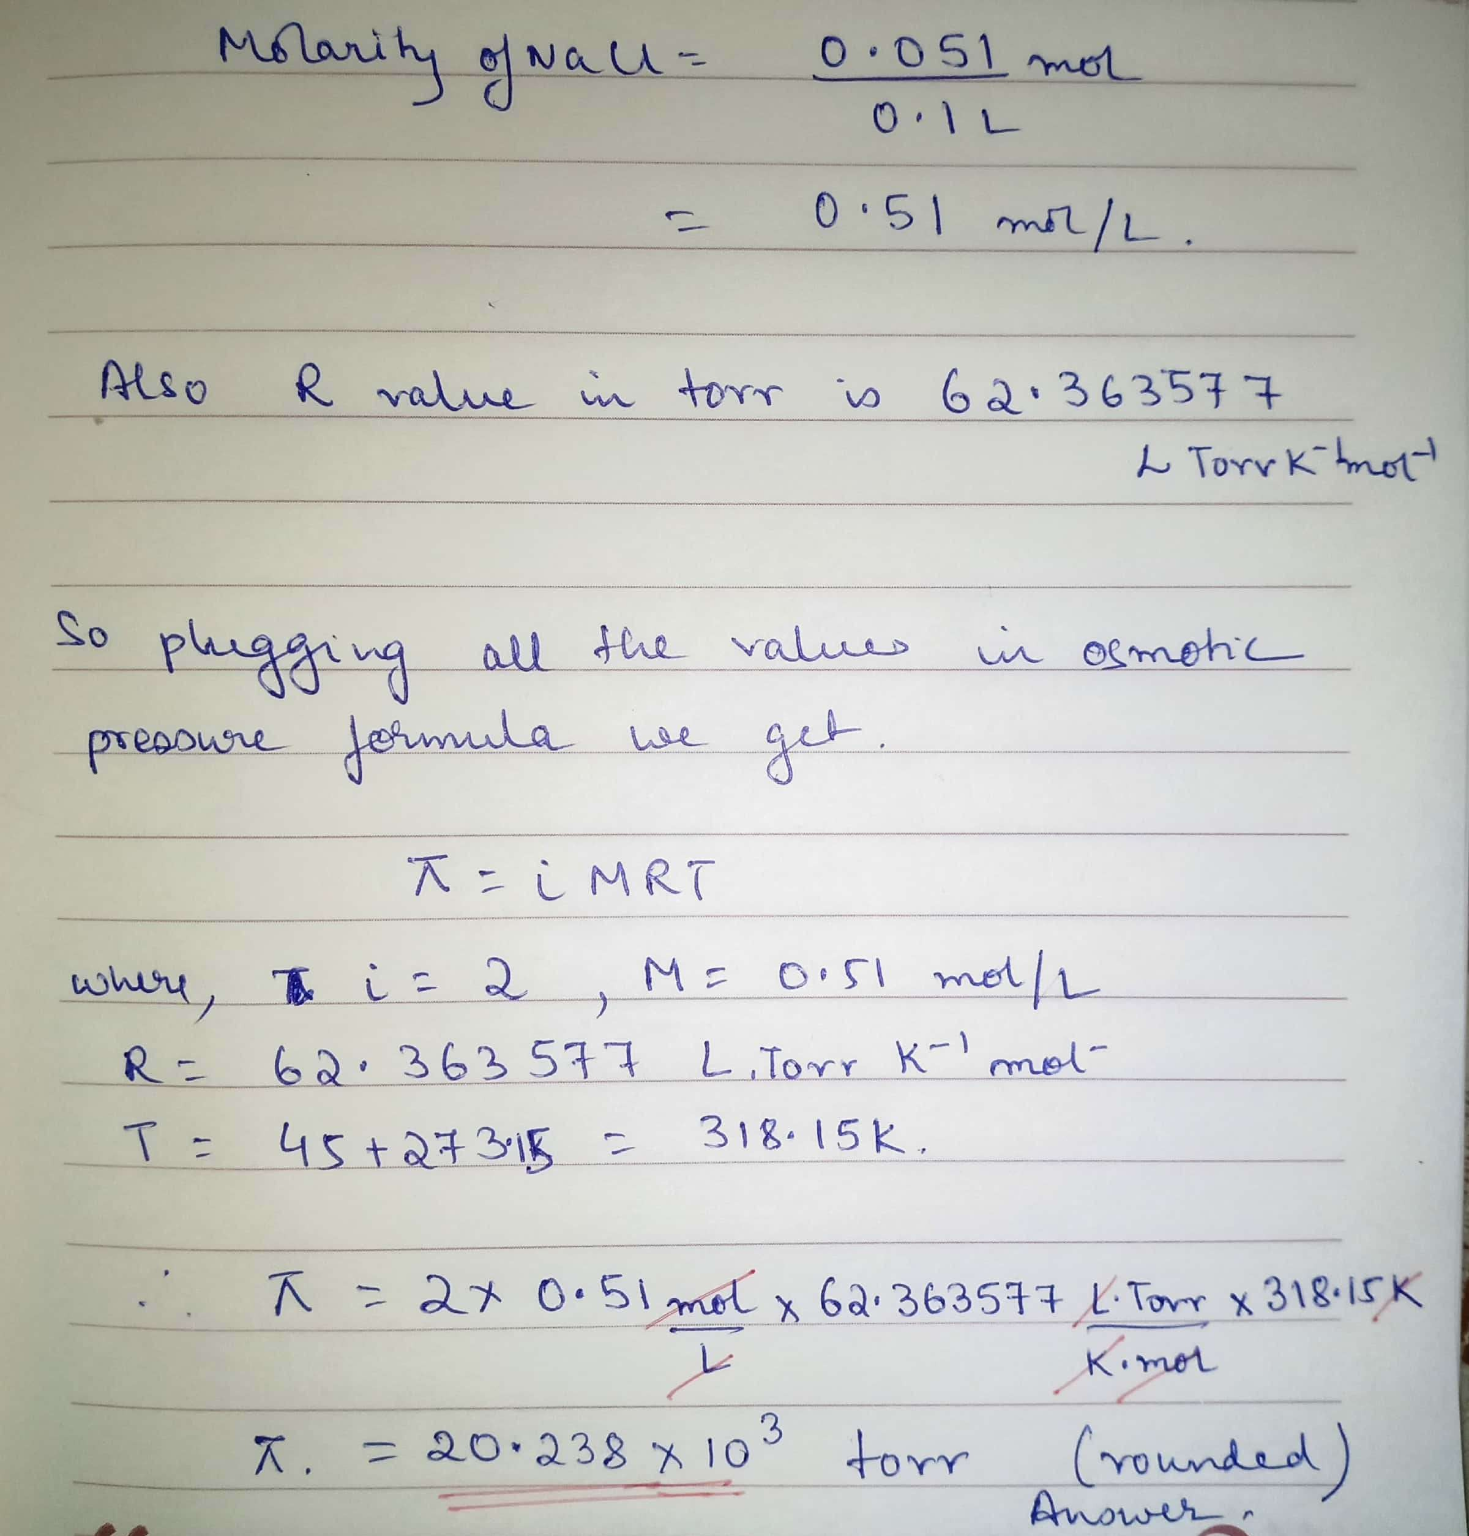 Molarity of NaCl = 0.051 mol
0.1 L
= 0.51 mol/L.
Also R value in torr is 62.363577
L Torr K⁻¹ mol⁻¹
So plugging all the values in osmotic
pressure formula we get.
π = i MRT
where, i = 2 , M = 0.51 mol/L
R = 62.363577 L.Torr K⁻¹ mol⁻
T = 45 + 273.15 = 318.15K.
∴ π = 2 x 0.51 mol x 62.363577 L.Torr x 318.15K
L K.mol
π. = 20.238 x 10³ torr (rounded)
Answer.